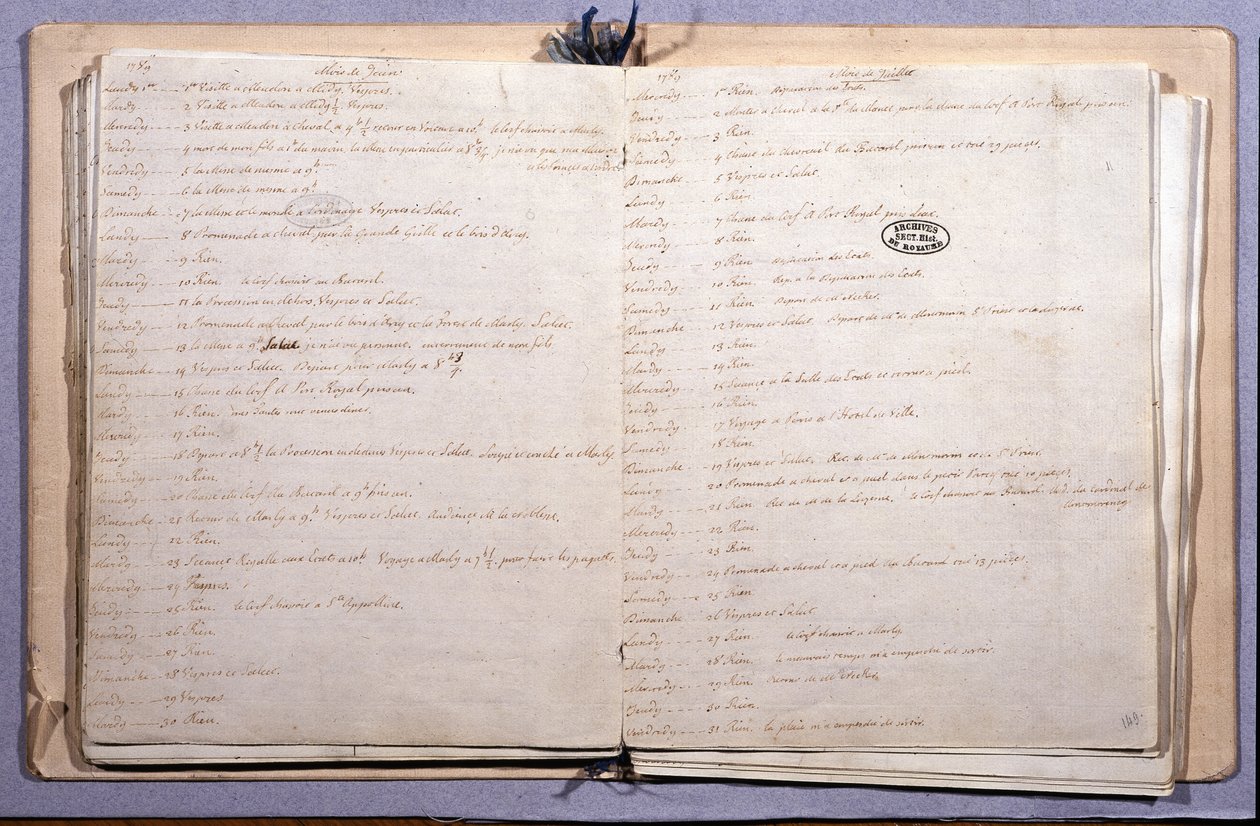 1789 Mois de Juin
Lundy 1er 1er Visitte a Meudon a Midy. Vespres.
Mardy 2 Visitte a Meudon a Midy ½ Vespres.
Mercredy 3 Visitte a Meudon a Cheval, a 4h ½ retour en Voiture a 10h le cerf chassoit a Marly.
Jeudy 4 mort de mon fils a 1h du matin, la Messe en particulier a 8h ¾ je n'ai vu que ma
et les Princes
Vendredy 5 la Messe de mesme a 9h
Samedy 6 la Messe de mesme a 9h
Dimanche 7 la Messe et le monde a l'ordinaire Vespres et Salut.
Lundy 8 Promenade a cheval par la Grande Grille et le bois d'
Mardy 9 Rien.
Mercredy 10 Rien. le cerf chassoit au Butard.
Jeudy 11 la Procession en dehors, Vespres et Salut.
Vendredy 12 Promenade a Cheval par le bois d' et la Forest de Marly. Salut.
Samedy 13 la Messe a 9h Salut je n'ai vu personne. enterrement de mon fils.
Dimanche 14 Vespres et Salut. Depart pour Marly a 8h ¾
Lundy 15 Chasse du Cerf a Port Royal pris un.
Mardy 16 Rien. mes Tantes sont venues diner.
Mercredy 17 Rien.
Jeudy 18 Depart a 8h ½ la Procession en dedans Vespres et Salut. Soupé et couché a Marly.
Vendredy 19 Rien.
Samedy 20 Chasse du Cerf au Butard a 9h pris un.
Dimanche 21 Retour de Marly a 9h Vespres et Salut. Audience de la noblesse.
Lundy 22 Rien.
Mardy 23 Seeance Royalle aux Etats a 10h Voyage a Marly a 7h ½ pour faire les paquets.
Mercredy 24 Vespres.
Jeudy 25 Rien. le cerf chassoit a Ste Appolline.
Vendredy 26 Rien.
Samedy 27 Rien.
Dimanche 28 Vespres et Salut.
Lundy 29 Vespres
Mardy 30 Rien.
1789 Mois de Juillet
Mercredy 1er Rien. Deputation des Etats.
Jeudy 2 Monté a cheval a la Pte du Maine pour la chasse du cerf a Port Royal pris un.
Vendredy 3 Rien.
Samedy 4 Chasse du chevreuil au Butard pris un et tué 29 pieces.
Dimanche 5 Vespres et Salut
Lundy 6 Rien
Mardy 7 Chasse du Cerf a Port Royal pris deux.
Mercredy 8 Rien.
Jeudy 9 Rien Deputation des Etats.
Vendredy 10 Rien. Rep. a la Deputation des Etats.
Samedy 11 Rien. Depart de Mr Necker.
Dimanche 12 Vespres et Salut. Depart de Mrs de Montmorin St Priest et la Luzerne.
Lundy 13 Rien.
Mardy 14 Rien.
Mercredy 15 Seeance a la Salle des Etats et retour a pied.
Jeudy 16 Rien.
Vendredy 17 Voyage a Paris a l'Hotel de Ville.
Samedy 18 Rien.
Dimanche 19 Vespres et Salut. Ret. de Mrs de Montmorin et St Priest.
Lundy 20 Promenade a cheval et a pied dans le petit Parc, tué 10 pieces
Mardy 21 Rien Ret. de Mr de la Luzerne, le cerf chassoit au Butard. Aud. du Cardinal de
Montmorency
Mercredy 22 Rien.
Jeudy 23 Rien.
Vendredy 24 Promenade a cheval et a pied au Butard tué 13 pieces.
Samedy 25 Rien.
Dimanche 26 Vespres et Salut
Lundy 27 Rien le cerf chassoit a Marly.
Mardy 28 Rien. le mauvais temps m'a empesché de sortir.
Mercredy 29 Rien. Retour de Mr Necker
Jeudy 30 Rien.
Vendredy 31 Rien. la pluie m'a empesché de sortir.
ARCHIVES
SECT. Hist.
DU ROYAUME
149.